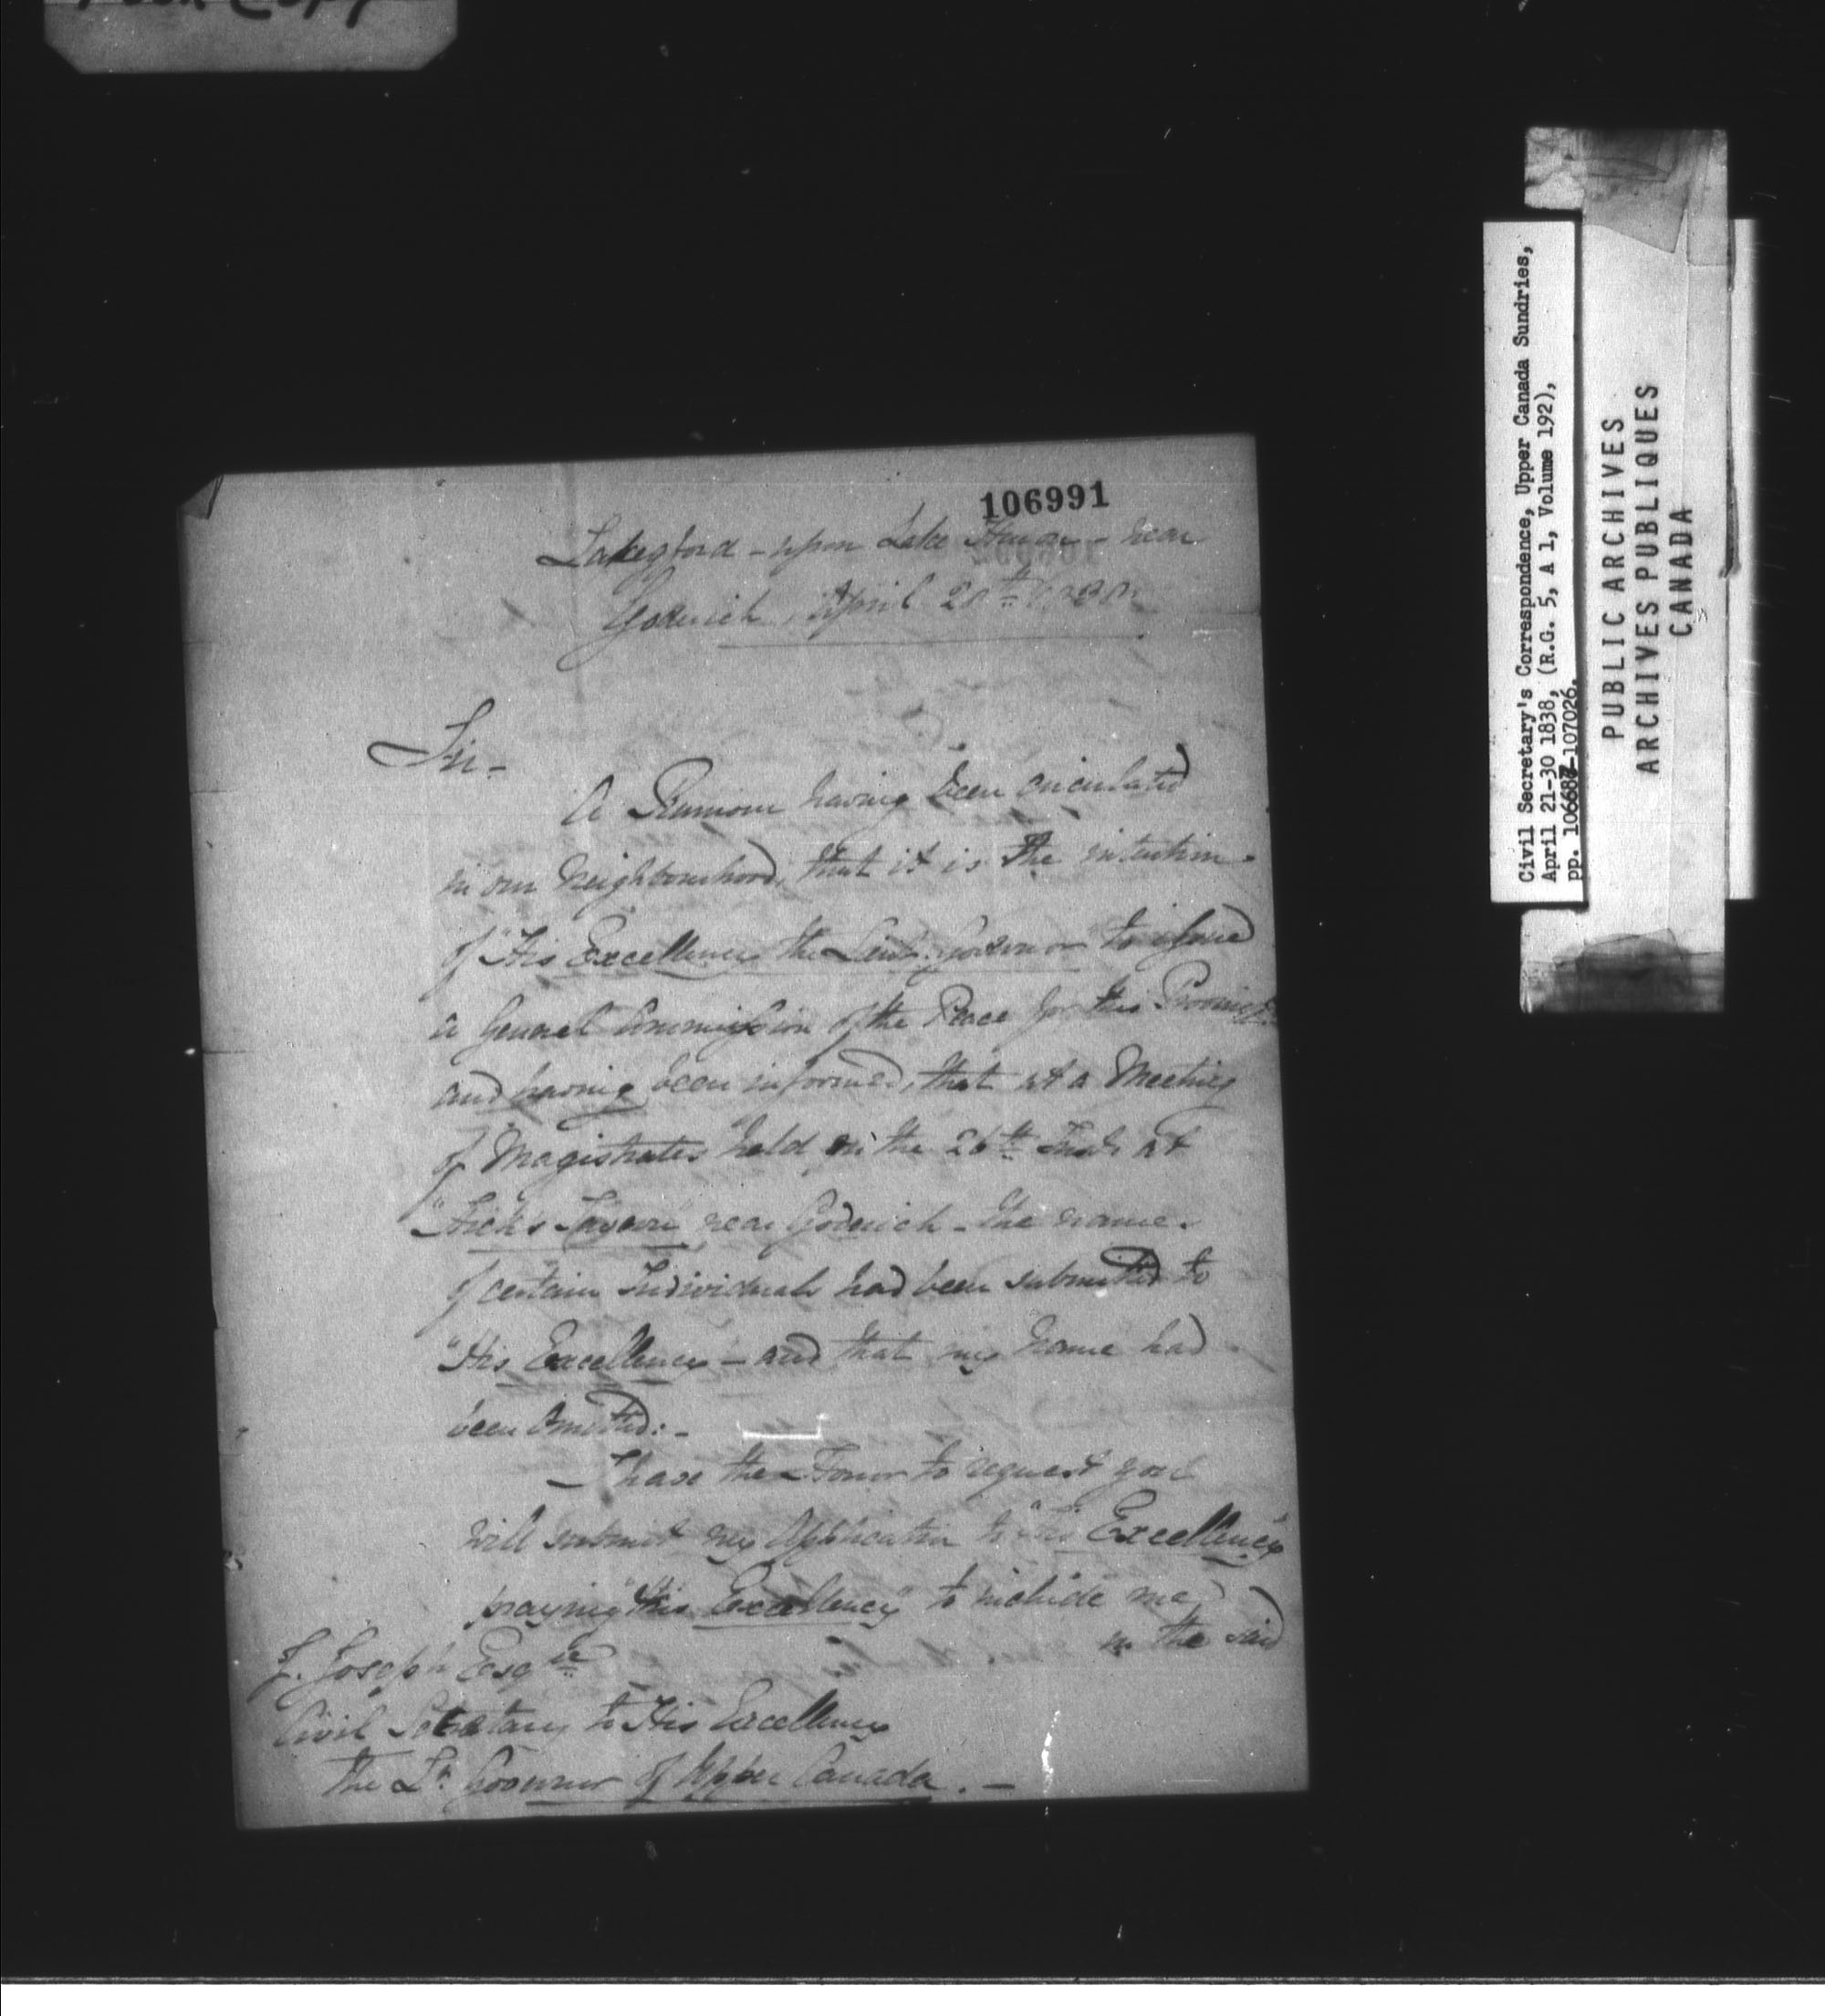 106991
Lakeford - upon Lake Huron - near
Goderich, April 28th 1838
Sir -
A Rumour having been circulated
in our Neighbourhood, that it is the intention
of "His Excellency the Lieut. Governor" to issue
a General Commission of the Peace for this Province
and having been informed, that at a Meeting
of Magistrates held on the 26th Inst. at
Tavern" near Goderich - the name
of certain Individuals had been submitted to
"His Excellency - and that my name had
been Omitted: -
- I have the Honor to request you
will submit my Application to "His Excellency
praying "His Excellency" to include me
in the said
J. Joseph Esqre
Civil Secretary to His Excellency
the Lt. Governor of Upper Canada. -
Civil Secretary's Correspondence, Upper Canada Sundries,
April 21-30 1838, (R.G. 5, A 1, Volume 192),
pp. 106687-107026.
PUBLIC ARCHIVES
ARCHIVES PUBLIQUES
CANADA